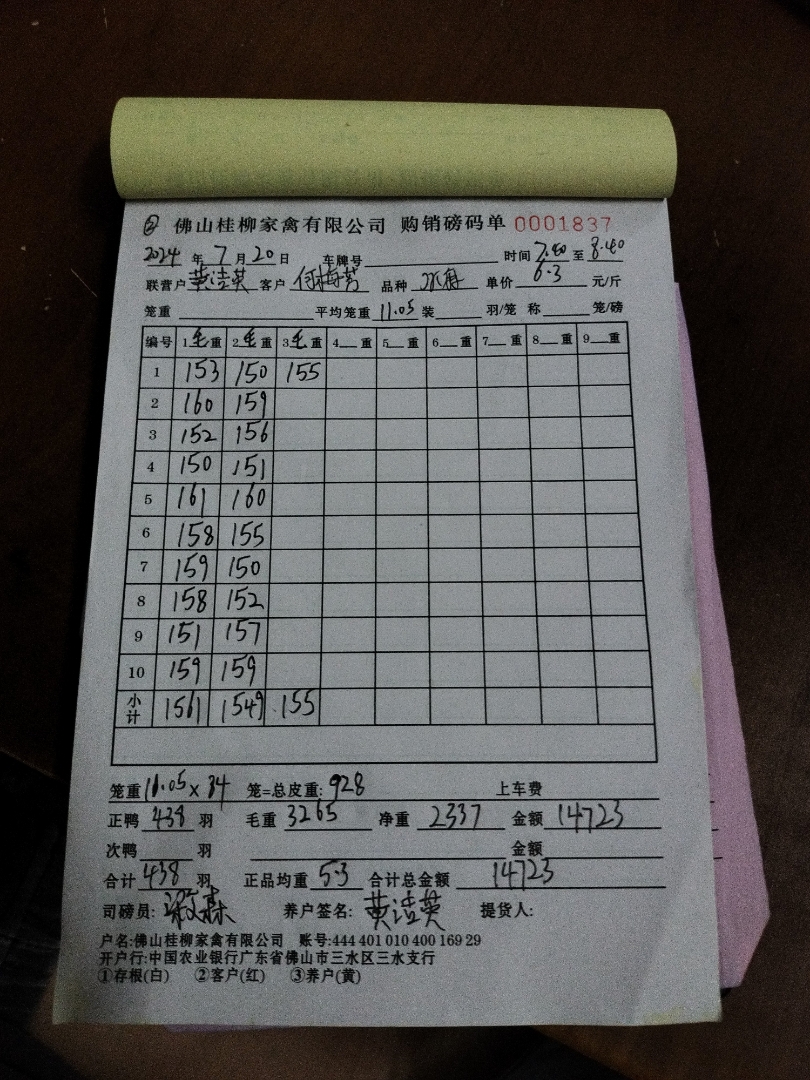 ② 佛山桂柳家禽有限公司 购销磅码单 0001837
2024 年 7 月 20 日 车牌号 时间 7.40 至 8.40
联营户 黄洁英 客户 何梅芳 品种 单价 6.3 元/斤
笼重 平均笼重 11.05 装 羽/笼 称 笼/磅
编号 1毛重 2毛重 3毛重 4 重 5 重 6 重 7 重 8 重 9 重
1 153 150 155
2 160 159
3 152 156
4 150 151
5 161 160
6 158 155
7 159 150
8 158 152
9 151 157
10 159 159
小计 1561 1549 155
笼重 11.05 × 84 笼=总皮重: 928 上车费
正鸭 438 羽 毛重 3265 净重 2337 金额 14723
次鸭 羽 金额
合计 438 羽 正品均重 5.3 合计总金额 14723
司磅员: 养户签名: 黄洁英 提货人:
户名:佛山桂柳家禽有限公司 账号:444 401 010 400 169 29
开户行:中国农业银行广东省佛山市三水区三水支行
①存根(白) ②客户(红) ③养户(黄)